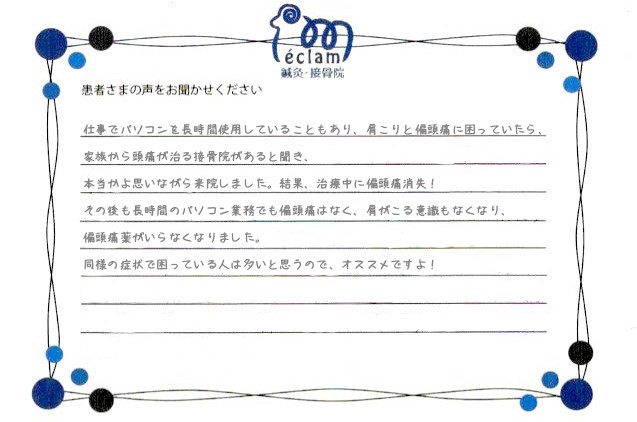 éclam
鍼灸・接骨院
患者さまの声をお聞かせください
仕事でパソコンを長時間使用していることもあり、肩こりと偏頭痛に困っていたら、
家族から頭痛が治る接骨院があると聞き、
本当かよ思いながら来院しました。結果、治療中に偏頭痛消失！
その後も長時間のパソコン業務でも偏頭痛はなく、肩がこる意識もなくなり、
偏頭痛薬がいらなくなりました。
同様の症状で困っている人は多いと思うので、オススメですよ！